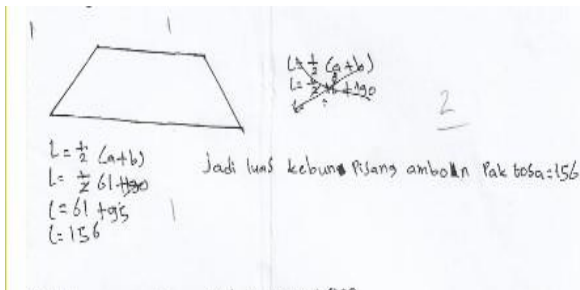 L = 1/2 (a+b)
L = 1/2
2
L = 1/2 (a+b)
L = 1/2 61 +190
L = 61 + 95
L = 156
Jadi luas kebun Pisang ambon Pak tosa = 156